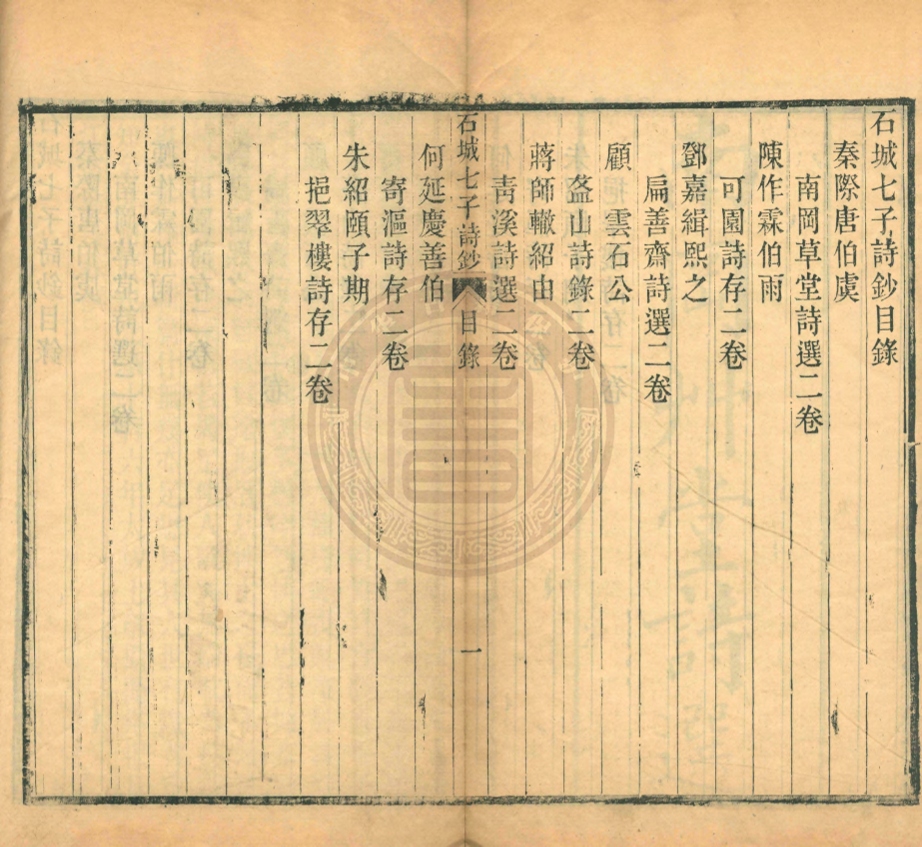 石城七子詩鈔目錄
秦際唐伯虞
南岡草堂詩選二卷
陳作霖伯雨
可園詩存二卷
鄧嘉緝熙之
扁善齋詩選二卷
顧雲石公
盋山詩錄二卷
蔣師轍紹由
青溪詩選二卷
石城七子詩鈔 目錄 一
何延慶善伯
寄漚詩存二卷
朱紹頤子期
挹翠樓詩存二卷